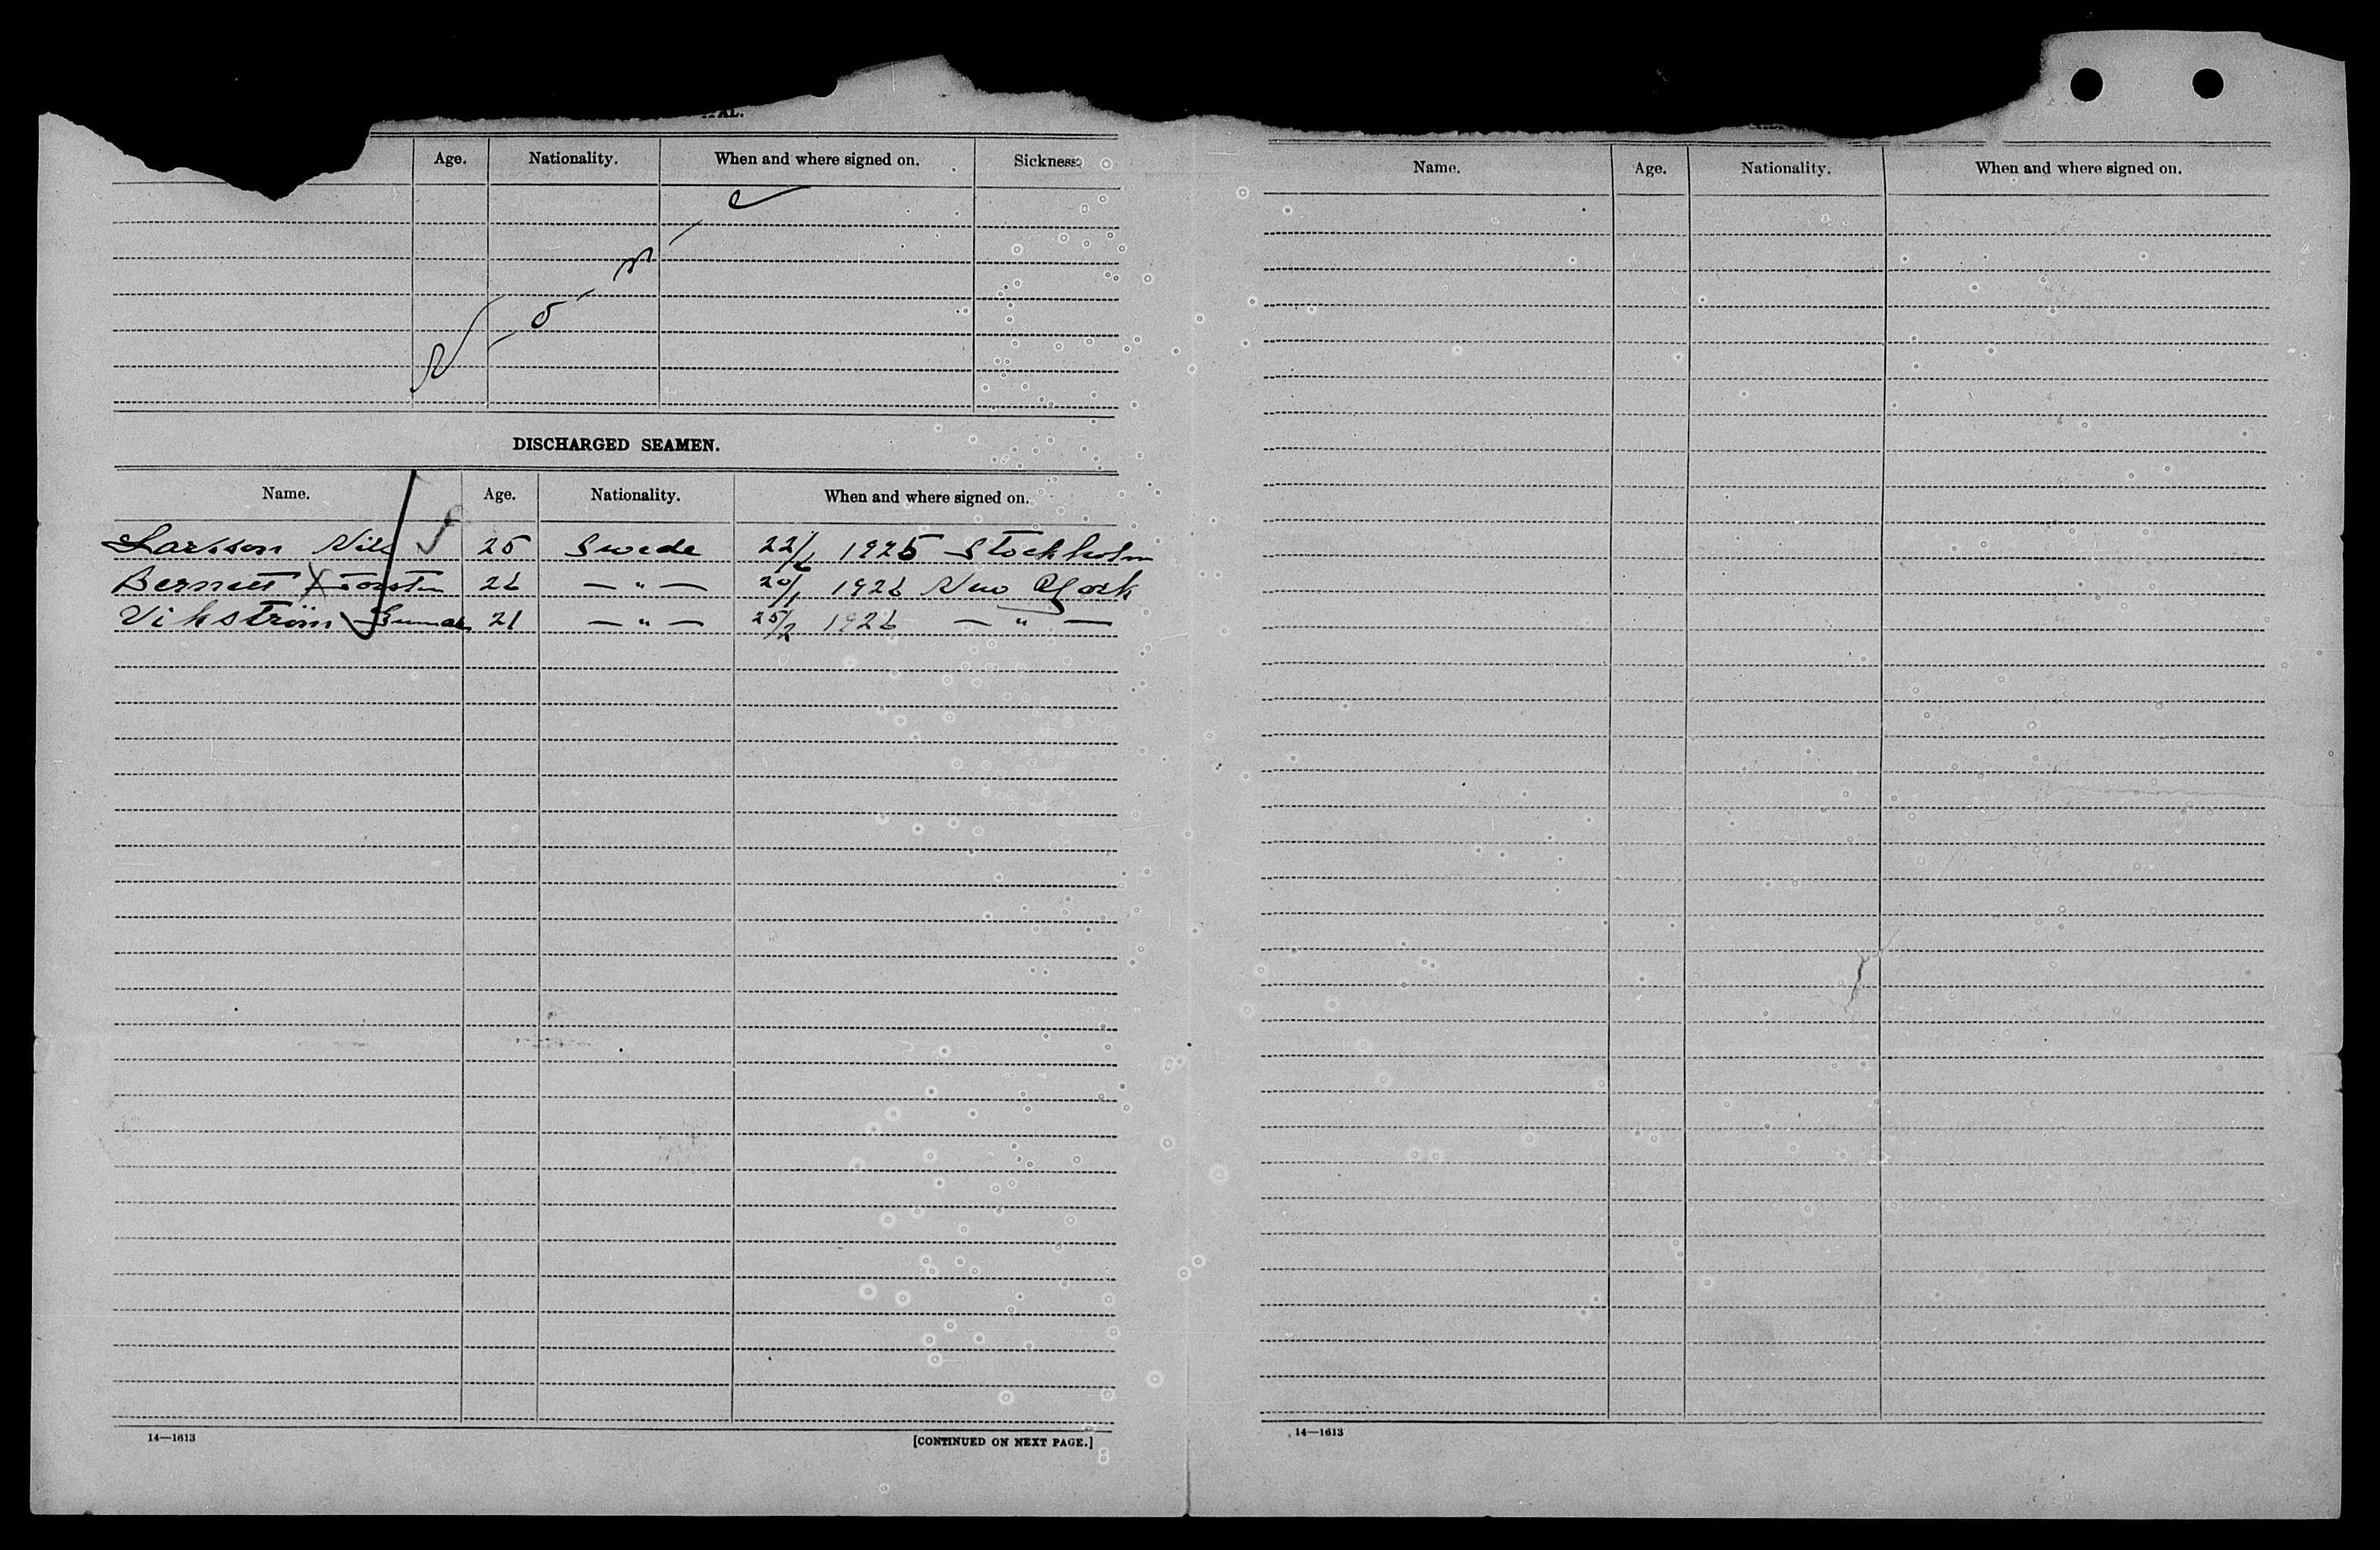 Age. Nationality. When and where signed on. Sickness.
None
DISCHARGED SEAMEN.
Name. Age. Nationality. When and where signed on.
Larsson Nils 25 Swede 22/6 1925 Stockholm
Torsten 26 — " — 20/1 1926 New York
Vikström Gunnar 21 — " — 25/2 1926 — " —
14—1613
[CONTINUED ON NEXT PAGE.]
Name. Age. Nationality. When and where signed on.
14—1613